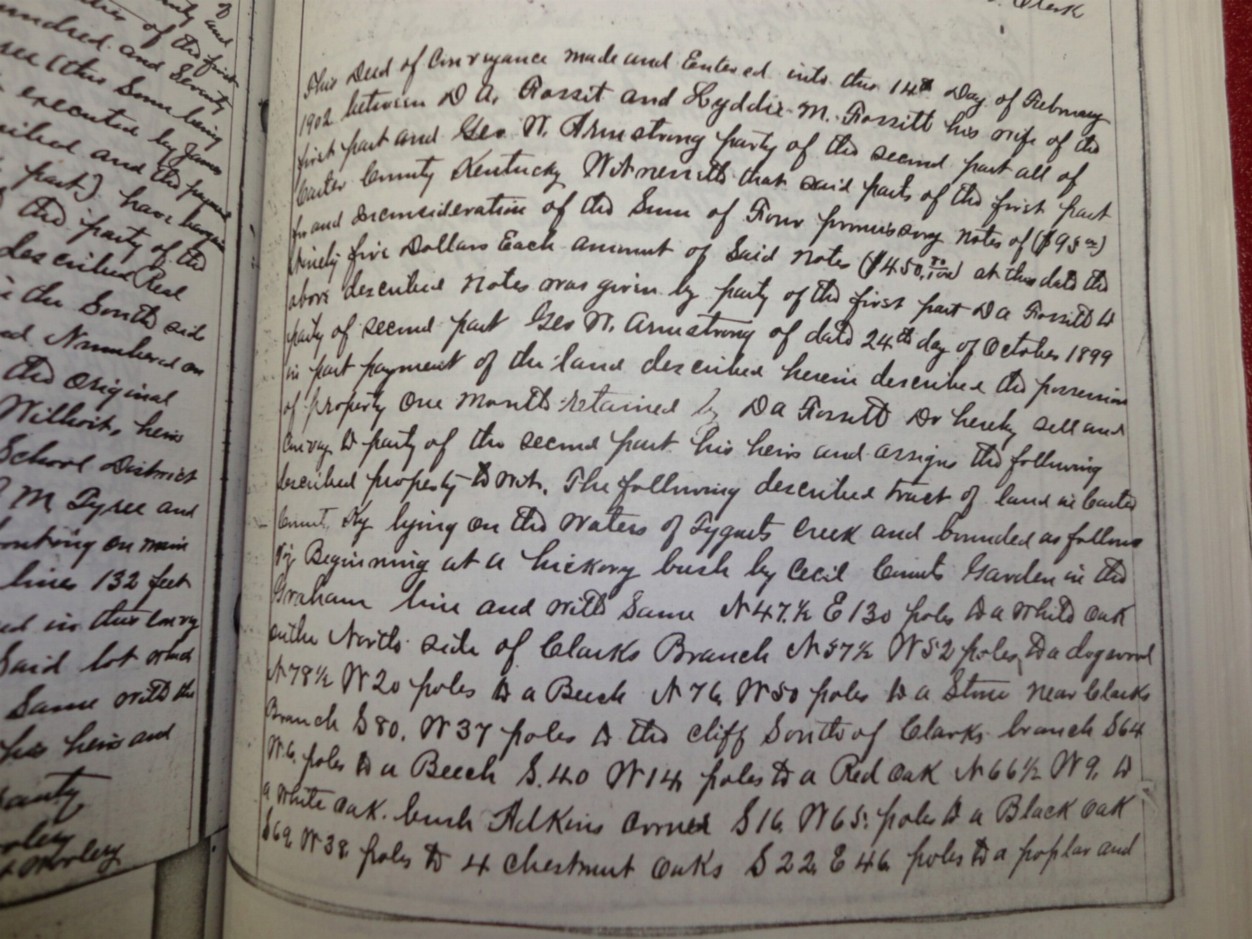 of
ity and
ties of the first
undred and Seventy
see (this Same being
executed by James
cribed and the payment
part) have bargain
the party of the
described Real
in the South side
and Numbered on
the original
Wilhoits heirs
School District
M Tyree and
fronting on main
lines 132 feet
ed in this Convey
Said lot and
Same with the
his heirs and
anty
orley
Worley
Clerk
This Deed of Conveyance made and Entered into this 14th Day of February
1902 between D A. Fossit and Lyddie M. Fossitt his wife of the
first part and Geo N. Armstrong party of the second part all of
Carter County Kentucky Witnesseth that said parts of the first part
for and inconsideration of the Sum of Four promissory notes of ($95 00)
Ninety five Dollars Each amount of Said notes ($450.) at this date the
above described notes was given by party of the first part D a Fossitt to
party of second part Geo N. Armstrong of date 24th day of October 1899
in part payment of the land described herein described the possession
of property One Month retained by D a Fossitt Do hereby sell and
Convey to party of the second part his heirs and assigns the following
described property to wit. The following described tract of land in Carter
County Ky lying on the waters of Tygarts Creek and bounded as follows
viz Beginning at a hickory bush by Cecil Counts Garden in the
Graham line and with Same N 47.½ E 130 poles to a white oak
onthe North side of Clarks Branch N 57½ W 52 poles, to a dogwood
N 78½ W 20 poles to a Beech N 76 W 50 poles to a Stone near Clarks
Branch S 80. W 37 poles to the cliff South of Clarks branch S 64
W 6. poles to a Beech S. 40 W 14 poles to a Red oak N 66½ W 9. to
a white oak. bush Adkins corner S 16 W 65. poles to a Black oak
S 69 W 38 poles to 4 chestnut oaks S 22 E 46 poles to a poplar and